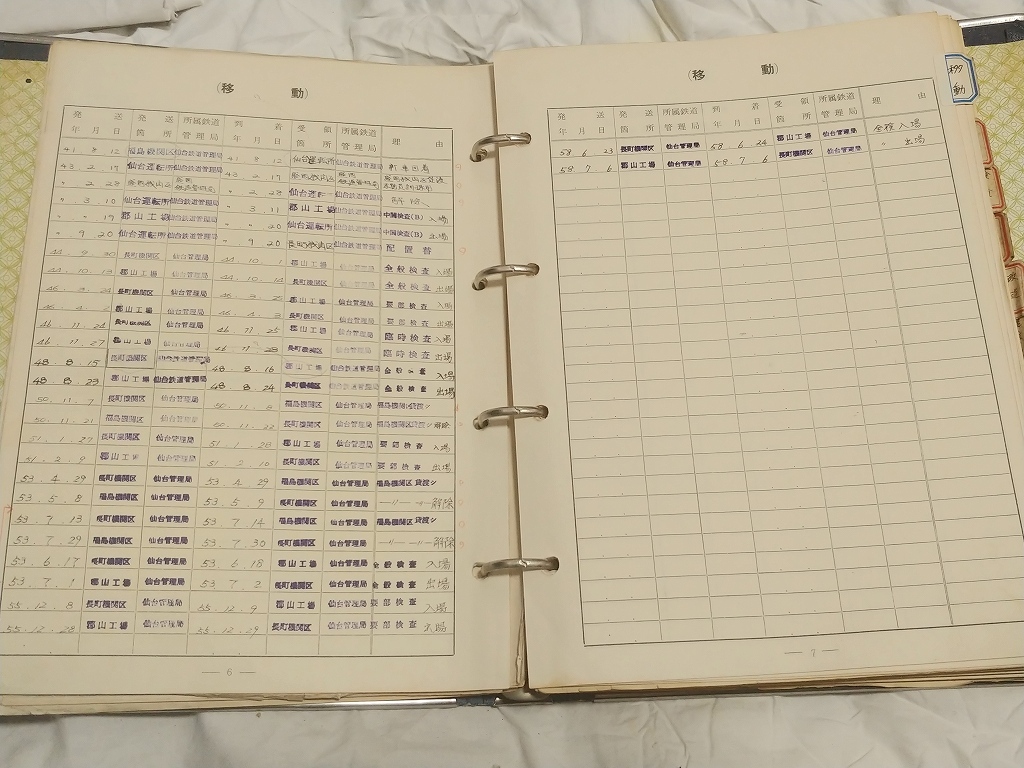 (移　動)
発送 年月日 発送箇所 所属鉄道管理局 到着 年月日 受領箇所 所属鉄道管理局 理由
41 8 12 福島機関区 仙台鉄道管理局 41 8 12 仙台運転所 仙台鉄道管理局
43 2 19 仙台運転所 仙台鉄道管理局 43 2 19
〃 2 23 〃 2 23 仙台運転所 仙台鉄道管理局 解除
〃 3 10 仙台運転所 仙台鉄道管理局 〃 3 11 郡山工場 仙台鉄道管理局 中間検査(B) 入場
〃 〃 19 郡山工場 仙台鉄道管理局 〃 〃 20 仙台運転所 仙台鉄道管理局 中間検査(B) 出場
〃 9 20 仙台運転所 仙台鉄道管理局 〃 9 20 長町機関区 仙台鉄道管理局 配置替
44. 9. 30 長町機関区 仙台管理局 44. 10. 1 郡山工場 仙台管理局 全般検査 入場
44. 10. 13 郡山工場 仙台管理局 44. 10. 14 長町機関区 仙台管理局 全般検査 出場
46. 3. 24 長町機関区 仙台管理局 46. 3. 25 郡山工場 仙台管理局 要部検査 入場
46. 4. 2 郡山工場 仙台管理局 46. 4. 3 長町機関区 仙台管理局 要部検査 出場
46. 11. 24 長町機関区 仙台管理局 46. 11. 25 郡山工場 仙台管理局 臨時検査 入場
46. 11. 27 郡山工場 仙台管理局 46. 11. 28 長町機関区 仙台管理局 臨時検査 出場
48. 8. 15 長町機関区 仙台鉄道管理局 48. 8. 16 郡山工場 仙台管理局 全般検査 入場
48. 8. 23 郡山工場 仙台鉄道管理局 48. 8. 24 長町機関区 仙台管理局 全般検査 出場
50. 11. 7 長町機関区 仙台管理局 50. 11. 8 福島機関区 仙台管理局 福島機関区貸渡シ
50. 11. 21 福島機関区 仙台管理局 50. 11. 22 長町機関区 仙台管理局 福島機関区貸渡シ 解除
51. 1. 27 長町機関区 仙台管理局 51. 1. 28 郡山工場 仙台管理局 要部検査 入場
51. 2. 9 郡山工場 仙台管理局 51. 2. 10 長町機関区 仙台管理局 要部検査 出場
53. 4. 29 長町機関区 仙台管理局 53. 4. 29 福島機関区 仙台管理局 福島機関区貸渡シ
53. 5. 8 福島機関区 仙台管理局 53. 5. 9 長町機関区 仙台管理局 〃 〃 解除
53. 7. 13 長町機関区 仙台管理局 53. 7. 14 福島機関区 仙台管理局 福島機関区貸渡シ
53. 7. 29 福島機関区 仙台管理局 53. 7. 30 長町機関区 仙台管理局 〃 〃 解除
53. 6. 17 長町機関区 仙台管理局 53. 6. 18 郡山工場 仙台管理局 全般検査 入場
53. 7. 1 郡山工場 仙台管理局 53. 7. 2 長町機関区 仙台管理局 全般検査 出場
55. 12. 8 長町機関区 仙台管理局 55. 12. 9 郡山工場 仙台管理局 要部検査 入場
55. 12. 28 郡山工場 仙台管理局 55. 12. 29 長町機関区 仙台管理局 要部検査 出場
— 6 —
(移　動)
発送 年月日 発送箇所 所属鉄道管理局 到着 年月日 受領箇所 所属鉄道管理局 理由
58 6 23 長町機関区 仙台管理局 58. 6. 24 郡山工場 仙台管理局 全検入場
58 7 6 郡山工場 仙台管理局 58. 7. 6 長町機関区 仙台管理局 〃 出場
— 7 —
移動